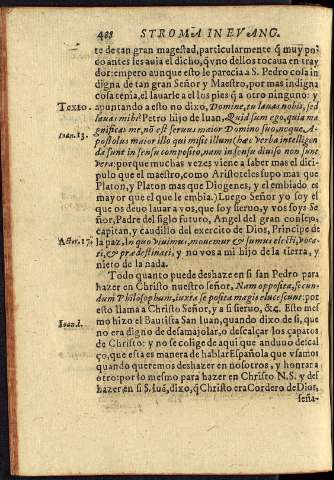 488 STROMA IN EVANG.
te de tan gran magestad, particularmente q̃ muy po
co antes les auia el dicho, q̃ vno dellos tocaua en tray
dor: empero aunque esto le parecia a S. Pedro cosa in
digna de tan gran Señor y Maestro, por mas indigna
cosa tenia, el lauarle a el los pies q̃ a otro ninguno: y
TEXTO. apuntando a esto no dixo, Domine, tu lauas nobis, sed
lauas mihi? Petro hijo de Iuan, Quia sum ego, quia ma
gnificas me, nō est seruus maior Domino suo, neque, A-
Ioan. 13. postolus maior illo qui misit illum (hæc verba intelligen
da sunt in sensu composito, nam in sensu diuiso non sunt
vera: porque muchas vezes viene a saber mas el dici-
pulo que el maestro, como Aristoteles supo mas que
Platon, y Platon mas que Diogenes, y el embiado es
mayor que el que le embia.) Luego Señor yo soy el
que os deuo lauar a vos, que soy sieruo, y vos soys Se
ñor, Padre del siglo futuro, Angel del gran consejo,
capitan, y caudillo del exercito de Dios, Principe de
Actor. 17. la paz, In quo viuimus, mouemur & sumus electi, voca-
ti, & prædestinati, y no vos a mi hijo de la tierra, y
nieto de la nada.
Todo quanto puede deshaze en si san Pedro para
hazer en Christo nuestro señor, Nam opposita, secun-
dum Philosophum, iuxta se posita magis eluce scunt: por
esto llama a Christo Señor, y a si sieruo, &c. Esto mes
Ioan. 1. mo hizo el Bautista San Iuan, quando dixo de si, que
no era digno de desamajolar, o descalçar los çapatos
de Christo: y no se colige de aqui que anduuo descal
ço, que esta es manera de hablar Española que vsamos
quando queremos deshazer en nosotros, y honrar a
otro: por lo mesmo para hazer en Christo N.S. y des
hazer en si S. Iuã, dixo, q̃ Christo era Cordero de Dios,
seña-